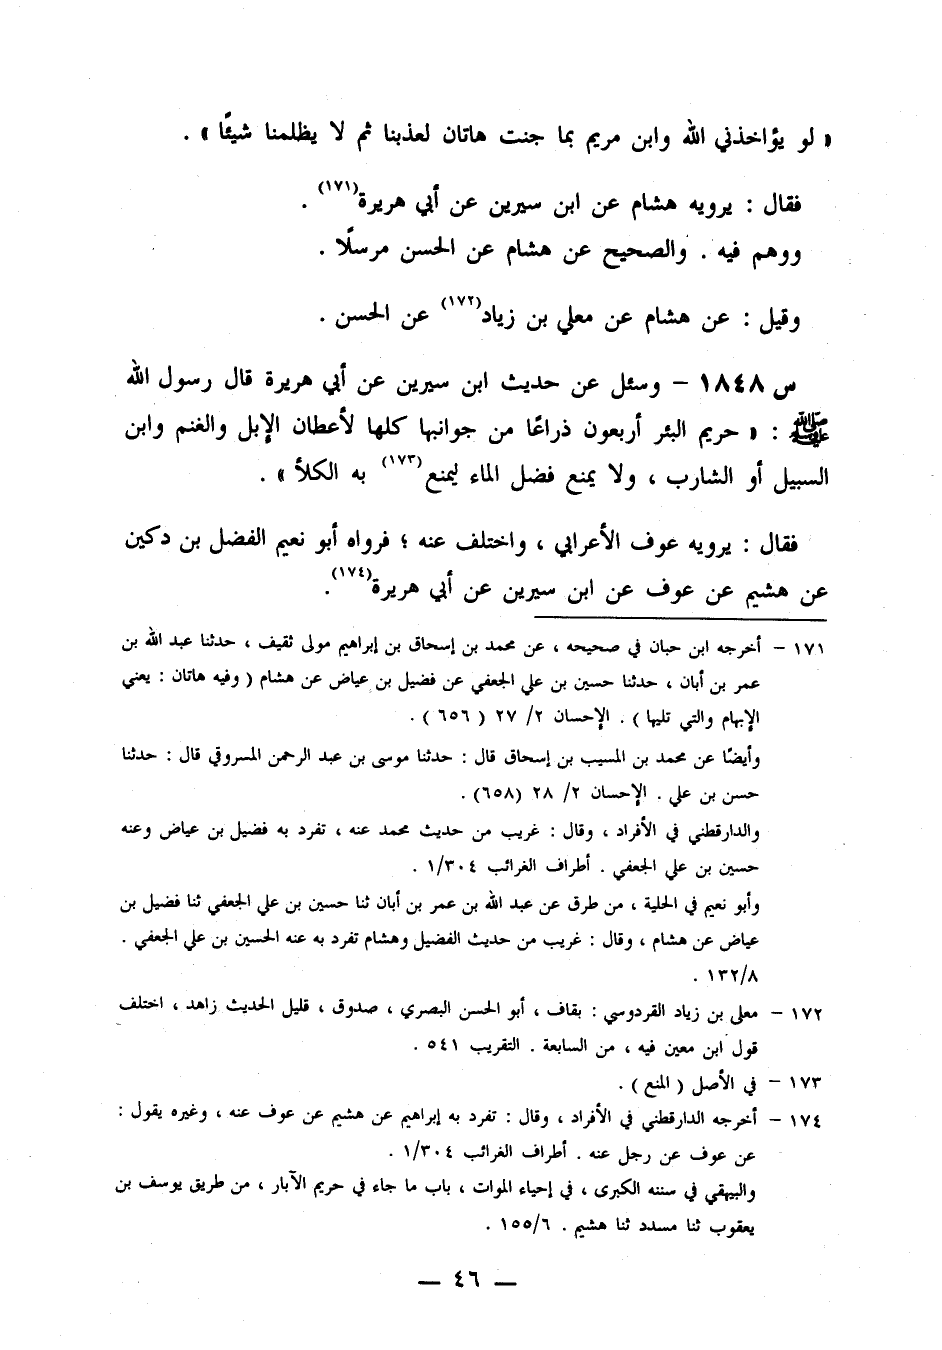 « لو يؤاخذني الله وابن مريم بما جنت هاتان لعذبنا ثم لا يظلمنا شيئًا » .
فقال : يرويه هشام عن ابن سيرين عن أبي هريرة(١٧١) .
ووهم فيه . والصحيح عن هشام عن الحسن مرسلًا .
وقيل : عن هشام عن معلي بن زياد(١٧٢) عن الحسن .
س ١٨٤٨ – وسئل عن حديث ابن سيرين عن أبي هريرة قال رسول الله
ﷺ : « حريم البئر أربعون ذراعًا من جوانبها كلها لأعطان الإبل والغنم وابن
السبيل أو الشارب ، ولا يمنع فضل الماء ليمنع(١٧٣) به الكلأ » .
فقال : يرويه عوف الأعرابي ، واختلف عنه ؛ فرواه أبو نعيم الفضل بن دكين
عن هشيم عن عوف عن ابن سيرين عن أبي هريرة(١٧٤).
١٧١ – أخرجه ابن حبان في صحيحه ، عن محمد بن إسحاق بن إبراهيم مولى ثقيف ، حدثنا عبد الله بن
عمر بن أبان ، حدثنا حسين بن علي الجعفي عن فضيل بن عياض عن هشام ( وفيه هاتان : يعني
الإبهام والتي تليها ) . الإحسان ٢/ ٢٧ ( ٦٥٦ ) .
وأيضًا عن محمد بن المسيب بن إسحاق قال : حدثنا موسى بن عبد الرحمن المسروقي قال : حدثنا
حسن بن علي . الإحسان ٢/ ٢٨ (٦٥٨) .
والدارقطني في الأفراد ، وقال : غريب من حديث محمد عنه ، تفرد به فضيل بن عياض وعنه
حسين بن علي الجعفي . أطراف الغرائب ١/٣٠٤ .
وأبو نعيم في الحلية ، من طرق عن عبد الله بن عمر بن أبان ثنا حسين بن علي الجعفي ثنا فضيل بن
عياض عن هشام ، وقال : غريب من حديث الفضيل وهشام تفرد به عنه الحسين بن علي الجعفي .
١٣٢/٨ .
١٧٢ – معلى بن زياد القردوسي : بقاف ، أبو الحسن البصري ، صدوق ، قليل الحديث زاهد ، اختلف
قول ابن معين فيه ، من السابعة . التقريب ٥٤١ .
١٧٣ – في الأصل ( المنع ) .
١٧٤ – أخرجه الدارقطني في الأفراد ، وقال : تفرد به إبراهيم عن هشيم عن عوف عنه ، وغيره يقول :
عن عوف عن رجل عنه . أطراف الغرائب ١/٣٠٤ .
والبيهقي في سننه الكبرى ، في إحياء الموات ، باب ما جاء في حريم الآبار ، من طريق يوسف بن
يعقوب ثنا مسدد ثنا هشيم . ١٥٥/٦ .
— ٤٦ —